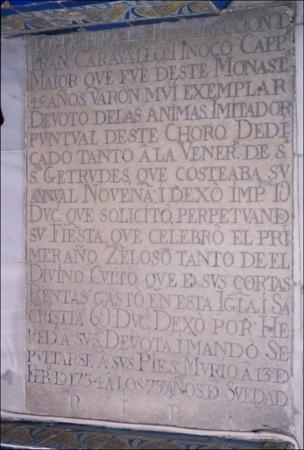 FRAN. CARAVALLO TINOCO CAPP.
MAIOR QUE FVE DESTE MONAST.
45 AÑOS VARON MVI EXEMPLAR
DEVOTO DELAS ANIMAS IMITADOR
PVNTVAL DESTE CHORO DEDI
CADO TANTO A LA VENER. DE S
S. GETRUDES, QUE COSTEABA SU
ANNVAL NOVENA, I DEXÒ IMP.
DVC. QUE SOLICITÒ, PERPETVAND
SV FIESTA, QUE CELEBRÒ EL PRI
MER AÑO ZELOSO TANTO DE EL
DIVINO CVLTO QUE D SVS CORTAS
RENTAS GASTÒ EN ESTA IGLA I SA
CRISTIA 60 DVC. DEXO POR HE
RED A SV S. DEVOTA I MANDÒ SE
PVLTARSE A SVS PIES, MVRIO A 13 D
FEB. D 1734 A LOS 73 AÑOS D SV EDAD
R I P A